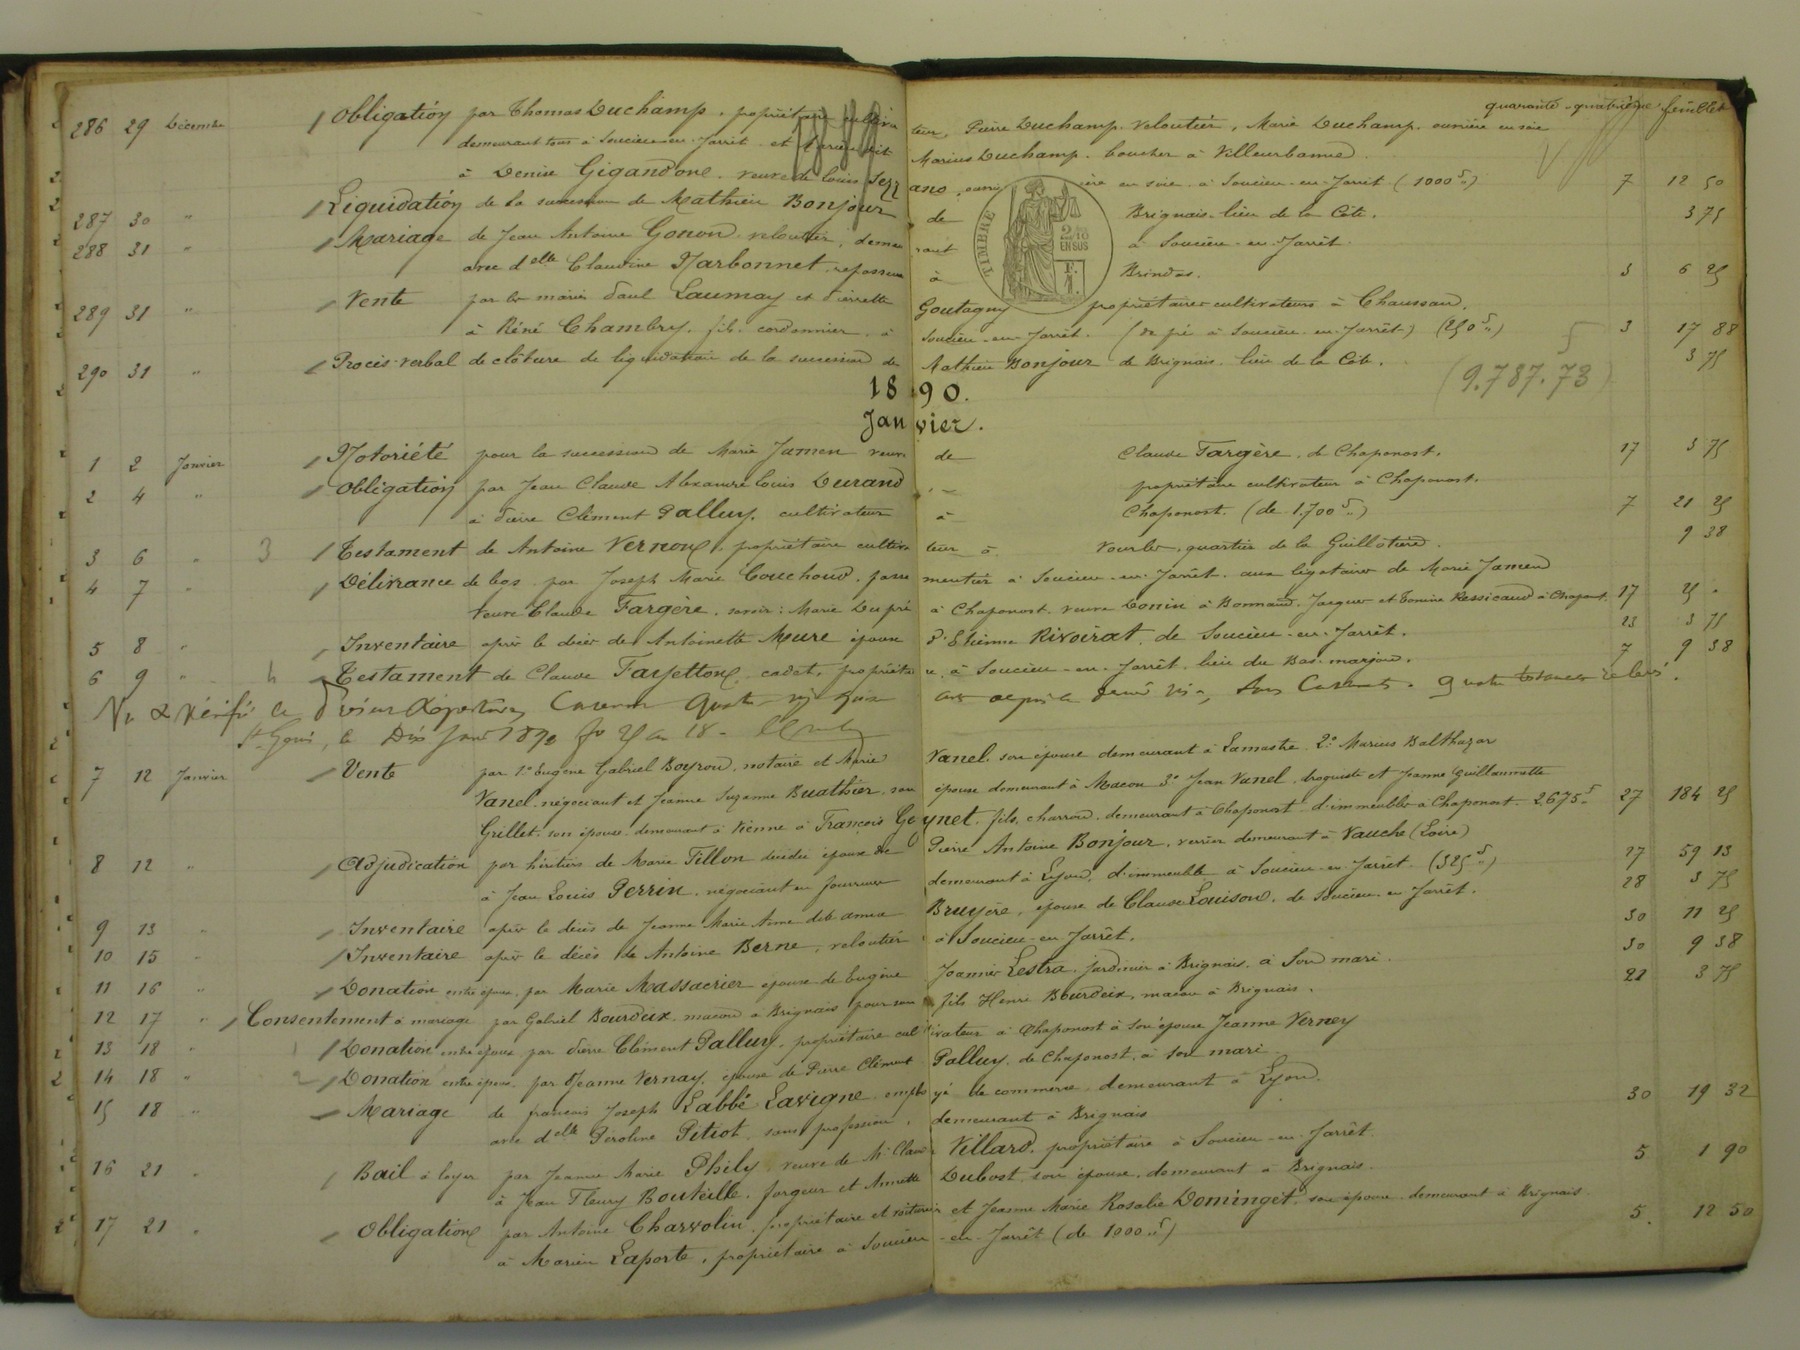 quarante-quatrième feuillet
286 29 Décembre Obligation par Thomas Duchamp, propriétaire cultivateur, Pierre Duchamp, veloutier, Marie Duchamp, ouvrière en soie
demeurant tous à Soucieu-en-Jarrêt et Marius Duchamp, boucher à Villeurbanne
à Denise Gigandon, veuve de Louis Sezzano, ouvrière en soie, à Soucieu-en-Jarrêt (1000 f) 7 12 50
287 30 " Liquidation de la succession de Mathieu Bonjour de Brignais, lieu de la Côte. 3 75
288 31 " Mariage de Jean Antoine Gonon, veloutier, demeurant à Soucieu-en-Jarrêt.
avec delle Claudine Narbonnet, repasseuse à Brindas. 3 6 25
TIMBRE 2/10 EN SUS
289 31 " Vente par les mariés Paul Laumay et Pierrette Goutagny propriétaires cultivateurs à Chaussan,
à Réné Chambry, fils, cordonnier, à Soucieu-en-Jarrêt. (de pré à Soucieu-en-Jarrêt) (250 f) 3 17 88
290 31 " Procès-verbal de clôture de liquidation de la succession de Mathieu Bonjour de Brignais, lieu de la Côte. 3 75
(9.787.73)
1890.
Janvier.
1 2 Janvier Notoriété pour la succession de Marie Jamen veuve de Claude Fargère, de Chaponost. 17 3 75
2 4 " Obligation par Jean Claude Alexandre Louis Durand propriétaire cultivateur à Chaponost.
à Pierre Clément Palluy, cultivateur à Chaponost. (de 1.700 f) 7 21 25
3 6 " 3 Testament de Antoine Vernoux, propriétaire cultivateur à Vourles, quartier de la Guillotière. 9 38
4 7 " Délivrance de legs par Joseph Marie Couchoud, passementier à Soucieu-en-Jarrêt, aux légataires de Marie Jamen
veuve Claude Fargère, savoir: Marie Dupré à Chaponost, veuve Bonin à Bonnand, Jacques et Ressicaud à Chaponost. 17 25 "
5 8 " Inventaire après le décès de Antoinette Mure épouse d'Etienne Rivoirat, de Soucieu-en-Jarrêt. 23 3 75
6 9 " 4 Testament de Claude Fayetton, cadet, propriétaire, à Soucieu-en-Jarrêt, lieu du Bas-marjon. 7 9 38
Vu & vérifié le
St Genis, le Dix 1890
7 12 Janvier Vente par 1° Eugène Gabriel Boyrou, notaire et Marie Vanel, son épouse demeurant à Lamastre 2° Marius Balthazar
Vanel, négociant et Jeanne Suzanne Buathier, son épouse demeurant à Macon 3° Jean Vanel, droguiste et Jeanne Guillaumette
Grillet, son épouse demeurant à Vienne à François Goynet, fils, charron, demeurant à Chaponost d'immeubles à Chaponost. 2,675 f 27 184 25
8 12 " Adjudication par héritiers de Marie Tillon décédée épouse de Pierre Antoine Bonjour, verrier demeurant à Vauche (Loire)
à Jean Louis Perrin, négociant en fourrures demeurant à Lyon, d'immeuble à Soucieu-en-Jarrêt (325 f) 27 59 13
9 13 " Inventaire après le décès de Jeanne Marie Bruyère, épouse de Claude Louison, de Soucieu-en-Jarrêt. 28 3 75
10 15 " Inventaire après le décès de Antoine Berne, veloutier à Soucieu-en-Jarrêt. 30 11 25
11 16 " Donation entre époux, par Marie Massacrier épouse de Eugène Joannès Lestra, jardinier à Brignais, à son mari. 30 9 38
12 17 " Consentement à mariage par Gabriel Bourdeix, maçon à Brignais pour son fils Henri Bourdeix, maçon à Brignais. 22 3 75
13 18 " 1 Donation entre époux par Pierre Clément Palluy, propriétaire cultivateur à Chaponost à son épouse Jeanne Verney
14 18 " 2 Donation entre époux, par Jeanne Vernay, épouse de Pierre Clément Palluy, de Chaponost, à son mari
15 18 " Mariage de François Joseph Labbé Lavigne, employé de commerce, demeurant à Lyon.
avec delle Péroline Petiot, sans profession, demeurant à Brignais 30 19 32
16 21 " Bail à loyer par Jeanne Marie Phily, veuve de Mr Claude Villard, propriétaire à Soucieu-en-Jarrêt
à Jean Fleury Bouteille, forgeur et Annette Dubost, son épouse, demeurant à Brignais. 5 1 90
17 21 " Obligation par Antoine Charvolin, propriétaire et voiturier et Jeanne Marie Rosalie Dominget, son épouse demeurant à Brignais.
à Marien Laporte, propriétaire à Soucieu-en-Jarrêt (de 1000 f) 5. 12 50